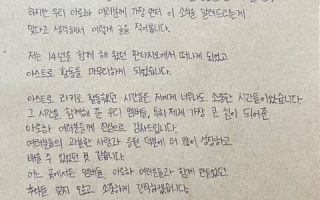 하지만 우리 아로하 여러분들께 가장 먼저 이 소식을 알려드리는게
맞다고 생각해서 이렇게 글을 적어봅니다.
저는 14년을 함께 해 왔던 판타지오에서 떠나게 되었고
아스트로 활동을 마무리하게 되었습니다.
아스트로 라키로 활동했던 시간들은 저에게 너무나도 소중한 시간들이었습니다
그 시간을 함께해 준 우리 멤버들, 특히 제게 가장 큰 힘이 되어준
아로하 여러분들께 진심으로 감사드립니다.
여러분들의 과분한 사랑과 응원 덕분에 더 많이 성장하고
배울 수 있었던 것 같습니다.
어느 곳에서든 멤버들, 아로하 여러분들과 함께 만들었던
추억들 잊지 않고 소중하게 간직하겠습니다.